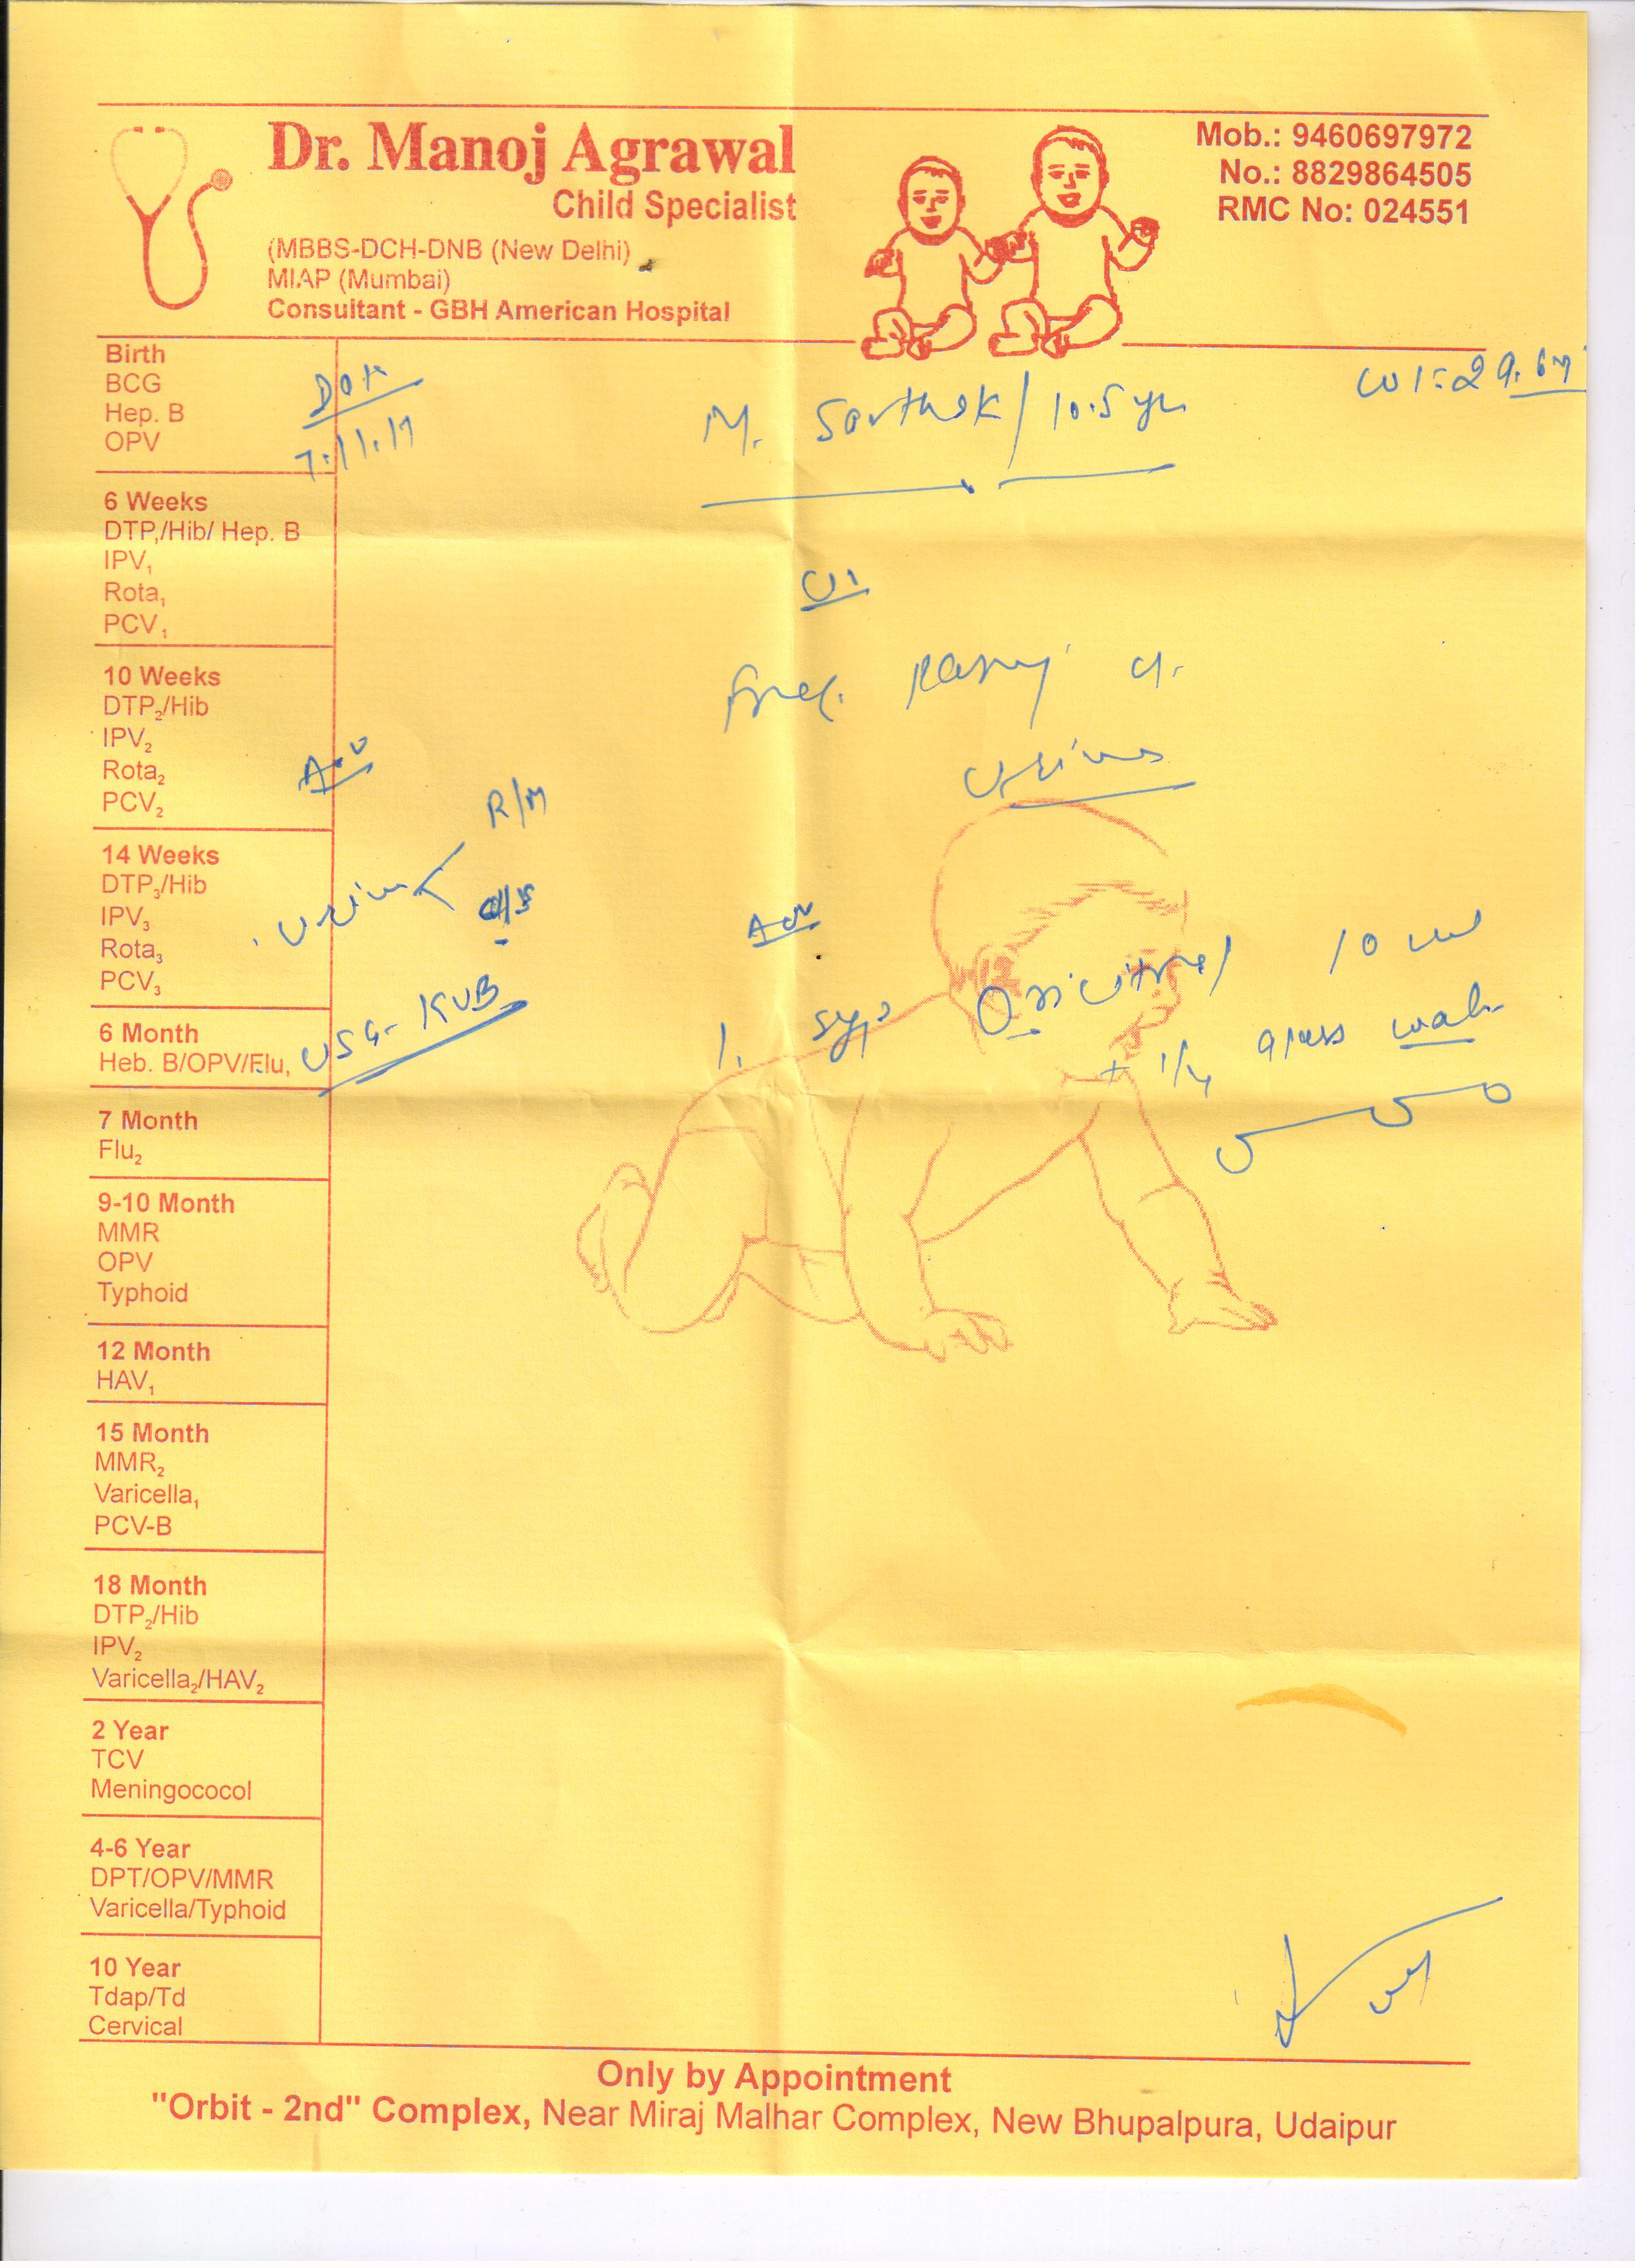 Dr. Manoj Agrawal
Child Specialist
(MBBS-DCH-DNB (New Delhi)
MIAP (Mumbai)
Consultant - GBH American Hospital
Mob.: 9460697972
No.: 8829864505
RMC No: 024551
Birth
BCG
Hep. B
OPV
6 Weeks
DTP₁/Hib/ Hep. B
IPV₁
Rota₁
PCV₁
10 Weeks
DTP₂/Hib
IPV₂
Rota₂
PCV₂
14 Weeks
DTP₃/Hib
IPV₃
Rota₃
PCV₃
6 Month
Heb. B/OPV/Flu₁
7 Month
Flu₂
9-10 Month
MMR
OPV
Typhoid
12 Month
HAV₁
15 Month
MMR₂
Varicella₁
PCV-B
18 Month
DTP₂/Hib
IPV₂
Varicella₂/HAV₂
2 Year
TCV
Meningococol
4-6 Year
DPT/OPV/MMR
Varicella/Typhoid
10 Year
Tdap/Td
Cervical
M. Sarthak / 10.5 yr
Urine
Adv
Urine
R/M
C/S
USG- KUB
Adv
1. Syp
10 ml
+ 1/4 glass water
Only by Appointment
"Orbit - 2nd" Complex, Near Miraj Malhar Complex, New Bhupalpura, Udaipur